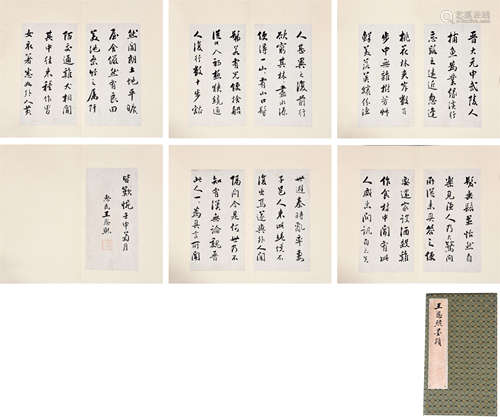 晋太元中武陵人
捕魚為業緣溪行
忘路之遠近忽逢
桃花林夾岸數百
步中無雜樹芳草
鮮美落英繽紛漁
人甚異之復前行
欲窮其林盡水源
便得一山有小口髣
髴若有光便捨船
從口入初極狹纔通
人復行數十步豁
然開朗土地平曠
屋舍儼然有良田
美池桑竹之屬阡
陌交通雞犬相聞
其中往來種作男
女衣著悉如外人黃
髮垂髫並怡然自
樂見漁人乃大驚問
所從來具答之便
要還家設酒殺雞
作食村中聞有此
人咸來問訊自云先
世避秦時亂率妻
子邑人來此絕境不
復出焉遂與外人間
隔問今是何世乃不
知有漢無論魏晉
此人一一為具言所聞
皆歎惋壬申菊月